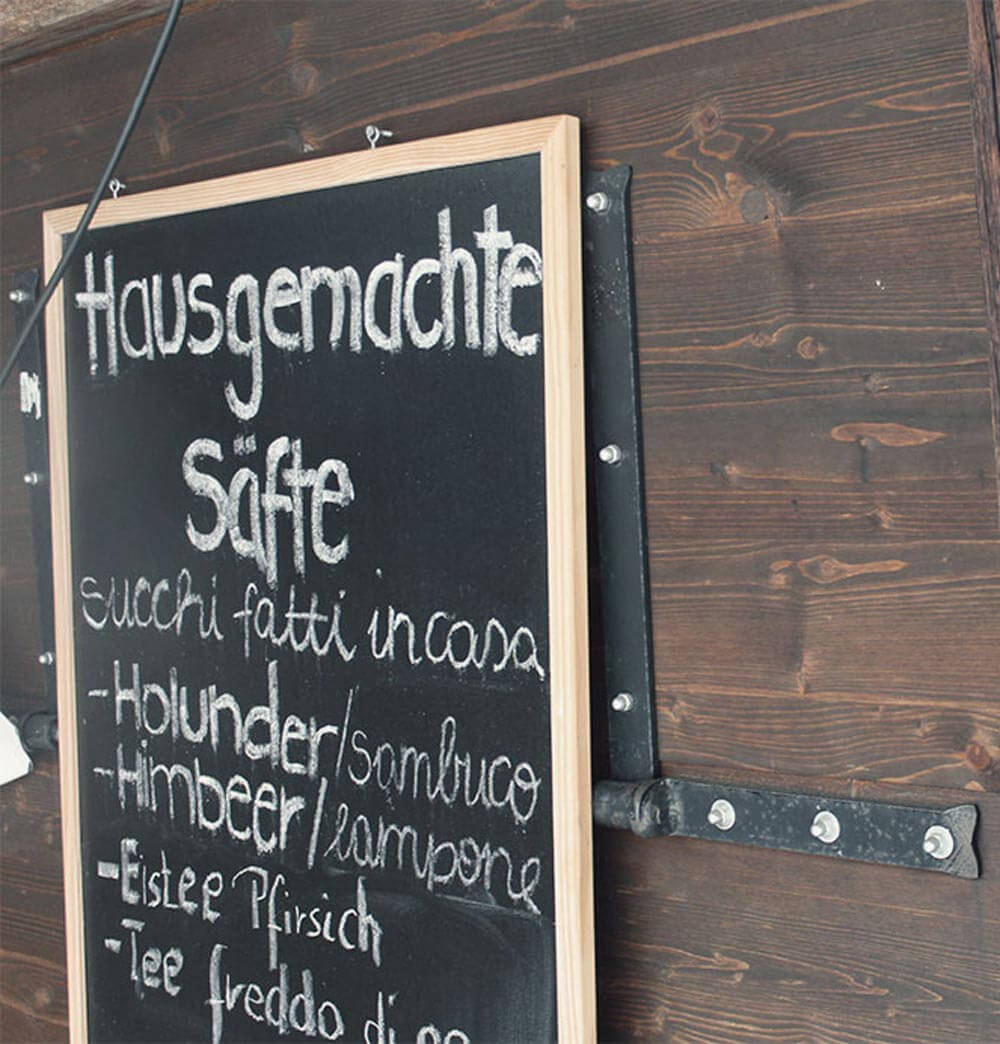 Hausgemachte
Säfte
succhi fatti in casa
-Holunder/sambuco
-Himbeer/lampone
-Eistee Pfirsich
-Tee freddo di